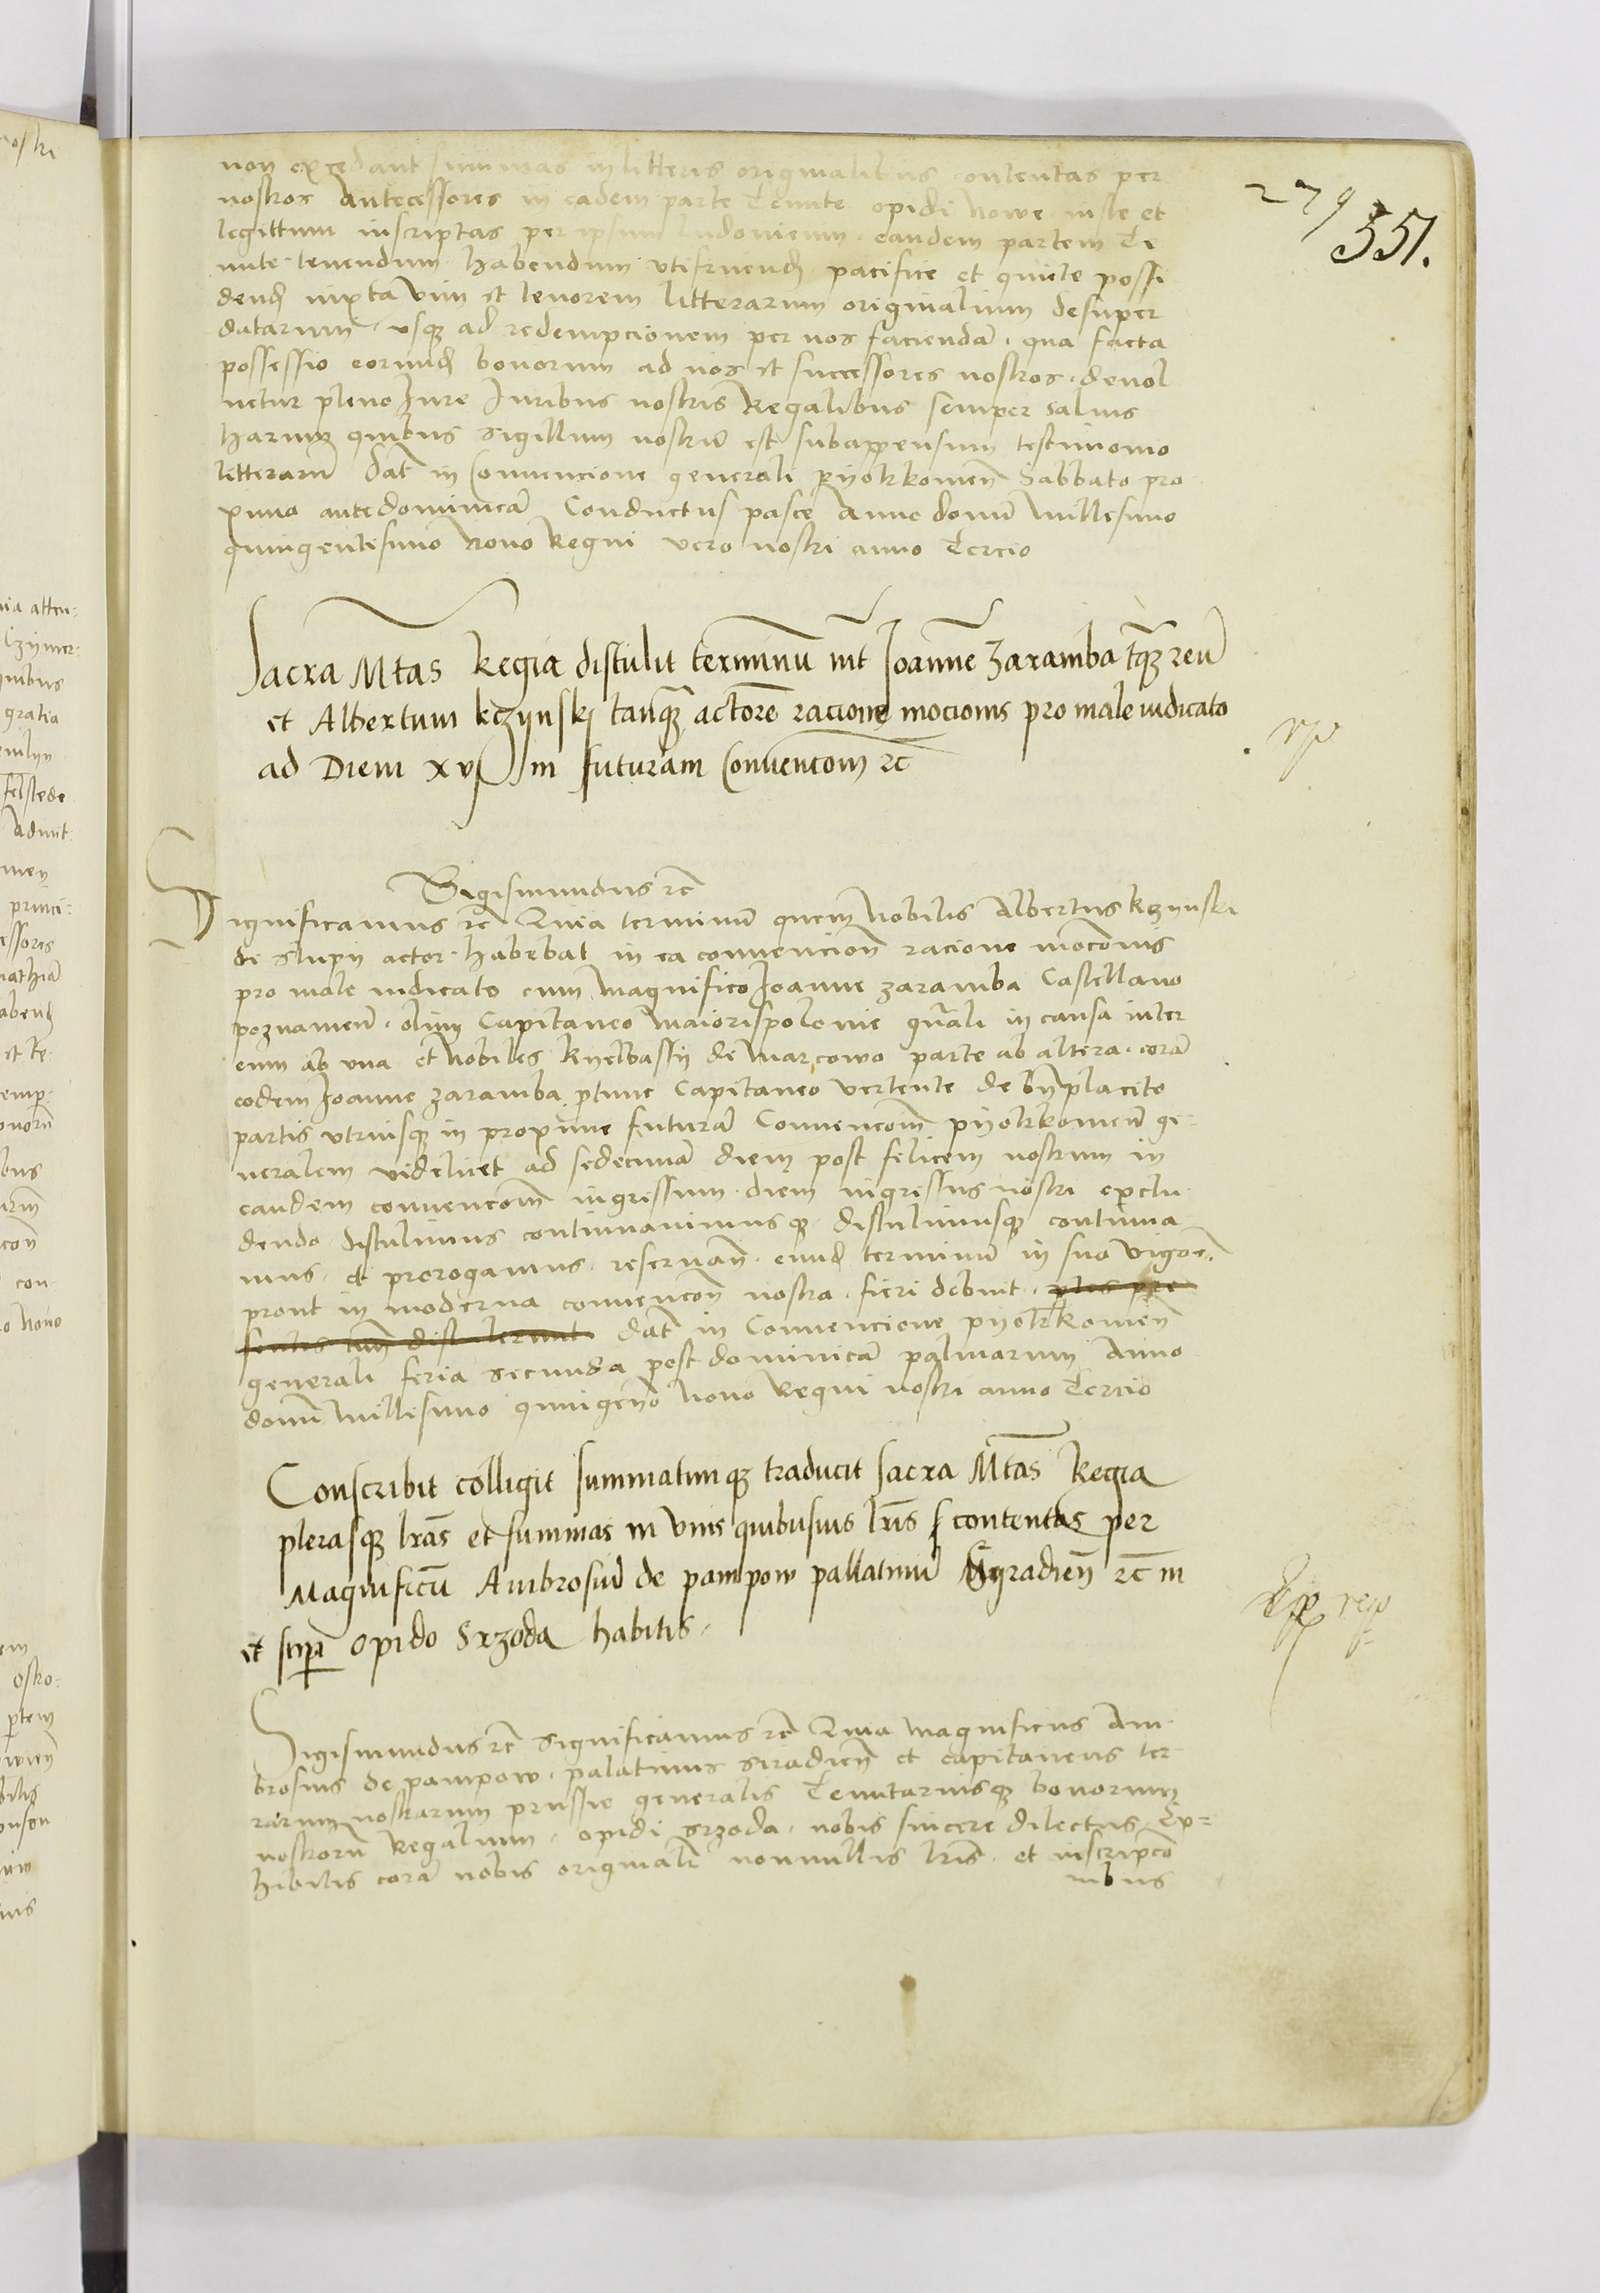 279
351.
non excedant summas in litteris originalibus contentas per
nostros Antecessores in eadem parte Tenute opidi Nowe iuste et
legittum inscriptas per ipsum ludovicum eandem partem Te
nute tenendum habendum utifruend pacifice et quiete possi
dend iuxta vim et tenorem litterarum originalium desuper
datarum usq ad redempcionem per nos faciendā qua facta
possessio eorund bonorum ad nos et successores nostros devol
vetur pleno Iure Iuribus nostris Regalibus semper salvis
harum quibus sigillum nostrū est subappensum testimonio
litterarū Dat in Convencione generali pyotrkowien Sabbato pro
ximo ante dominicā Conductus pasce Anno domi millesimo
quingentesimo Nono Regni vero nostri anno Tercio
Sacra Mtas Regia distulit terminū int Joannē Zaramba tq reū
et Albertum kczynski tanq actorē racione mocionis pro male iudicato
ad Diem xvj in futuram Convencom rc
Sigismundus rc
Significamus rc Quia terminū quem Nobilis Albertus kczynski
de slupy actor habebat in ea convencion racione mocionis
pro male iudicato cum Magnifico Joanne zaramba Castellano
poznamen olim Capitaneo maiorispolonie gnali in causa inter
eum ab una et Nobiles kyelbassy de marcowo parte ab altera corā
eodem Joanne zaramba ptunc Capitaneo vertente de bnplacito
partis utriusq in proxime futurā Convencom pyotrkowien ge
neralem videlicet ad sedecimā diem post felicem nostrum in
eandem convencom ingressum diem ingressus nostri exclu
dendo distulimus continuavimusq distulimusq continua
mus et prorogamus reservan eund terminū in suo vigore
prout in moderna convencon nostra fieri debuit ptes pre
sentes tum distulerunt dat in Convencione pyotrkowien
generali feria secunda post dominicā palmarum Anno
domi millesimo quingeno Nono Regni nostri anno Tercio
Conscribit colligit summatimq traducit Sacra Mtas Regia
plerasq lras et summas in unis quibusvis lris contentas per
Magnificū Ambrosiū de pampow pallatinū Syradien rc in
et super opido Srzoda habitis
Sigismundus rc Significamus rc Quia magnificus Am
brosius de pampow palatinus siradien et capitaneus ter
rarum nostrarum prussie generalis Tenutariusq bonorum
nostrorū Regalium opidi srzoda nobis sincere dilectus Ex
hibitis corā nobis originali nonnullis lris et inscripco
nibus